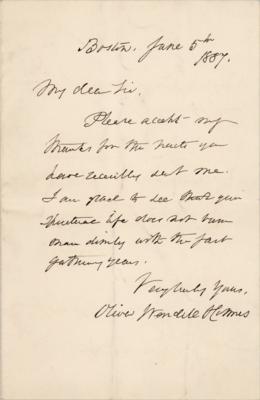 Boston, June 5th
1887.
My dear Sir,
Please accept my
thanks for the tracts you
have recently sent me.
I am glad to see that your
spiritual life does not burn
more dimly with the fast
gathering years.
Very truly Yours,
Oliver Wendell Holmes